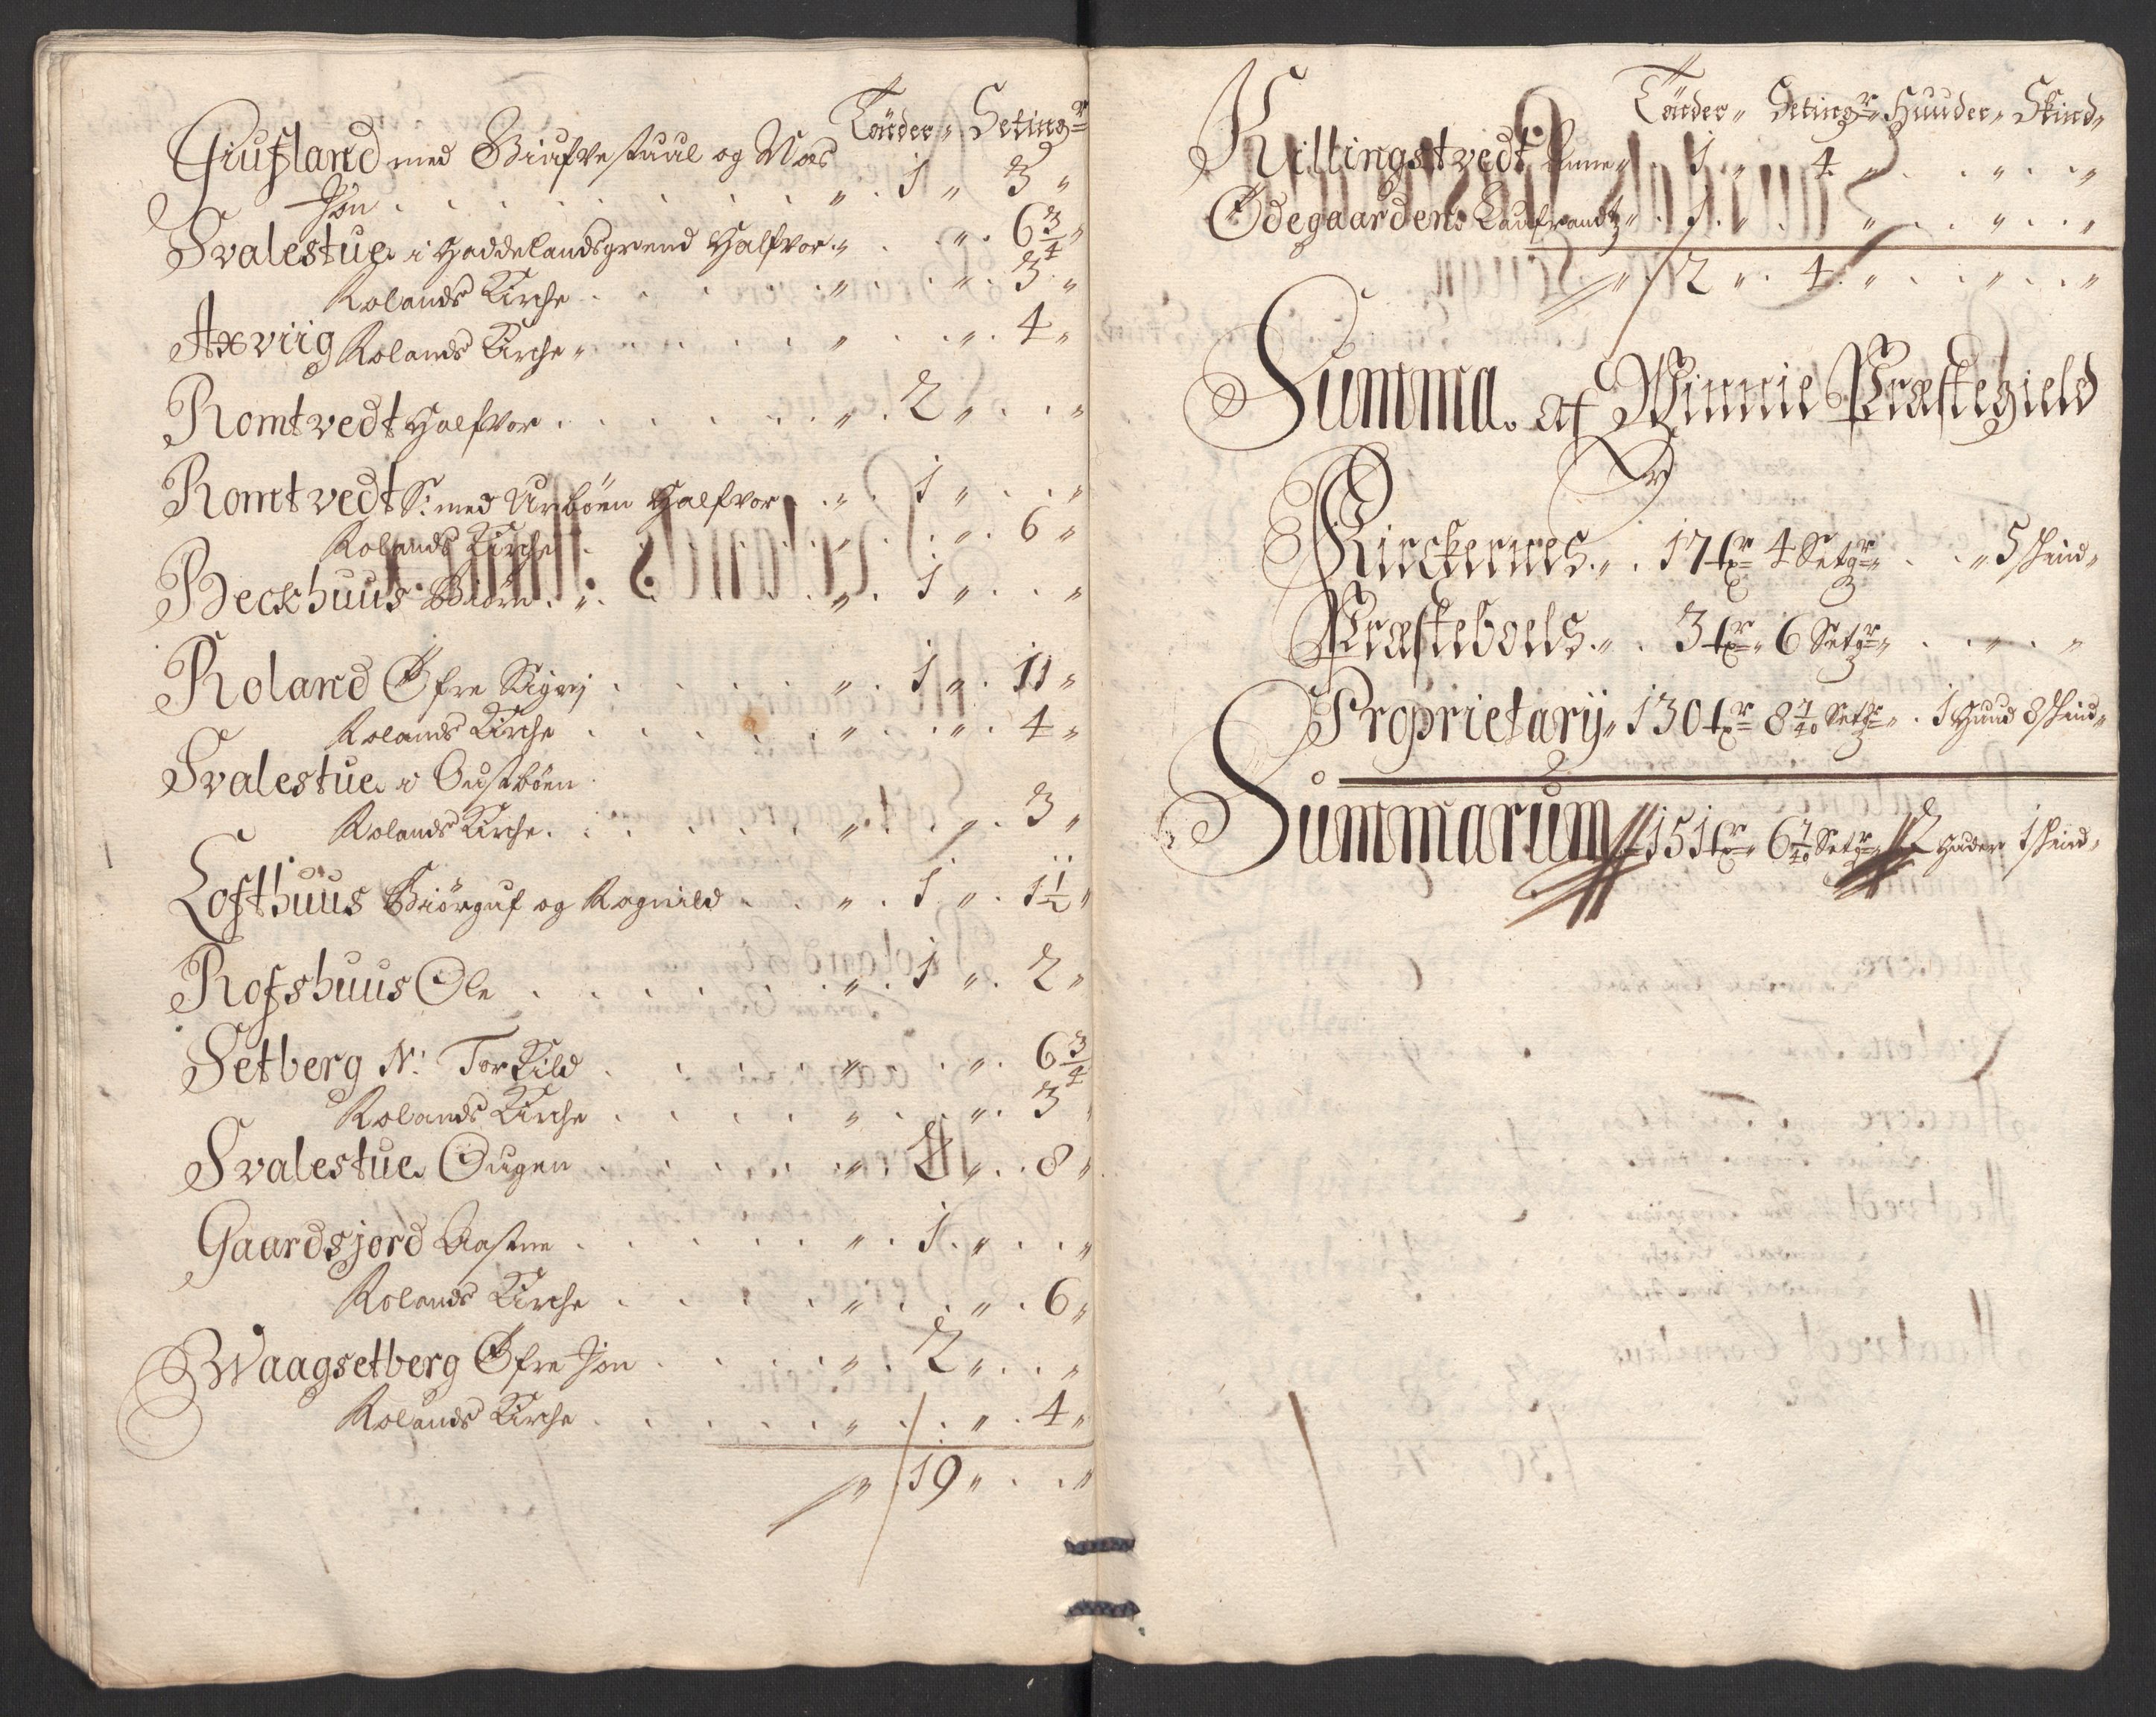 Tønder „ Setingr
Giufsland med Biufvestuul og Næs
Jon . . . . . . . . „ . 1 „ 3 „
Svalestue i Haddelandsgrend Halfvor „ . . „ . 6 3/4 „
Rolands Kirche . . . . „ . . „ . 3 „
Axviig Rolands Kirche „ . . . . „ . . „ . 4 „
Romtvedt Halfvor . . . . . . „ . 2 „ . . „
Romtvedt S: med Urbøen Halfvor . „ . 1 „ . . „
Rolands Kirche . . . . „ . . „ . 6 „
Beckhuus Biørn . „ . . . . . „ . 1 „ . . „
Roland Øfre Sigrj . . . . . „ . 1 „ . 11 „
Rolands Kirche . . . . . „ . . „ . 4 „
Svalestue i Oustbøen
Rolands Kirche . . . . . „ . . „ . 3 „
Lofthuus Biørguf og Ragnild . . „ . 1 „ . 1 1/2 „
Rofshuus Ole . . . . . . „ . 1 „ . 2 „
Setberg N: Torkild . . . . „ . . „ . 6 3/4
Rolands Kirche . . . . „ . . „ . 3 „
Svalestue Ougen . . . . . „ . „ . . 8 „
Gaardsjord Aastne . . . . . „ . 1 „ . . „
Rolands Kirche . . . . „ . . „ . 6 „
Waagsetberg Øfre Jon . . . . „ . 2 „ . . „
Rolands Kirche . . . . . „ . . „ . 4 „
„ 19 „ . . „
Tønder „ Setingr „ Huuder „ Skind „
Killingstvedt Anne „ . 1 „ . 4 „ . . „ . . „
Ødegaarden Laufrandtz „ . 1 „ . „ . . „ . . „
„ 2 „ . 4 „ . . „ . . „
Summa af Winnie Præstegield
Kirckernes „ . 17 tr 4 Setgr „ . . „ 5 skind „
Præsteboels „ . 3 tr „ 6 Setgr „ . . „ . „
Proprietarij „ 130 tr 8 7/40 Setgr „ . 1 Huud 8 skind „
Summarum 151 tr „ 6 7/40 Setgr „ 2 huder 1 skind „